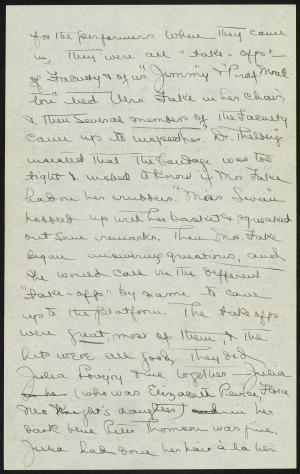 for the performers when they came
in, They were all "take-offs"
of Faculty & of us. "Jimmy" & "Prof. Moul-
ton" tied Mrs. Fake in her chair,
& then several members of the Faculty
came up to inspect her. "Dr. Thelberg"
wanted that the bandage was too
tight & wished to know if Mrs Fake
had on her rubbers. "Miss Swan"
hobbled up with her basket & squeaked
out some remarks. Then Mrs. Fake
began answering questions, and
she would call in the different
"take-offs" by name to come
up to the platform. The take offs
were great, most of them, & the
hits were all good. They did
Julia Lovejoy & me together — Julia
(who was Elizabeth Peirce, Flora
McKnight's daughter) in her
dark blue Peter Thomson was fine.
Julia had done her hair à la her